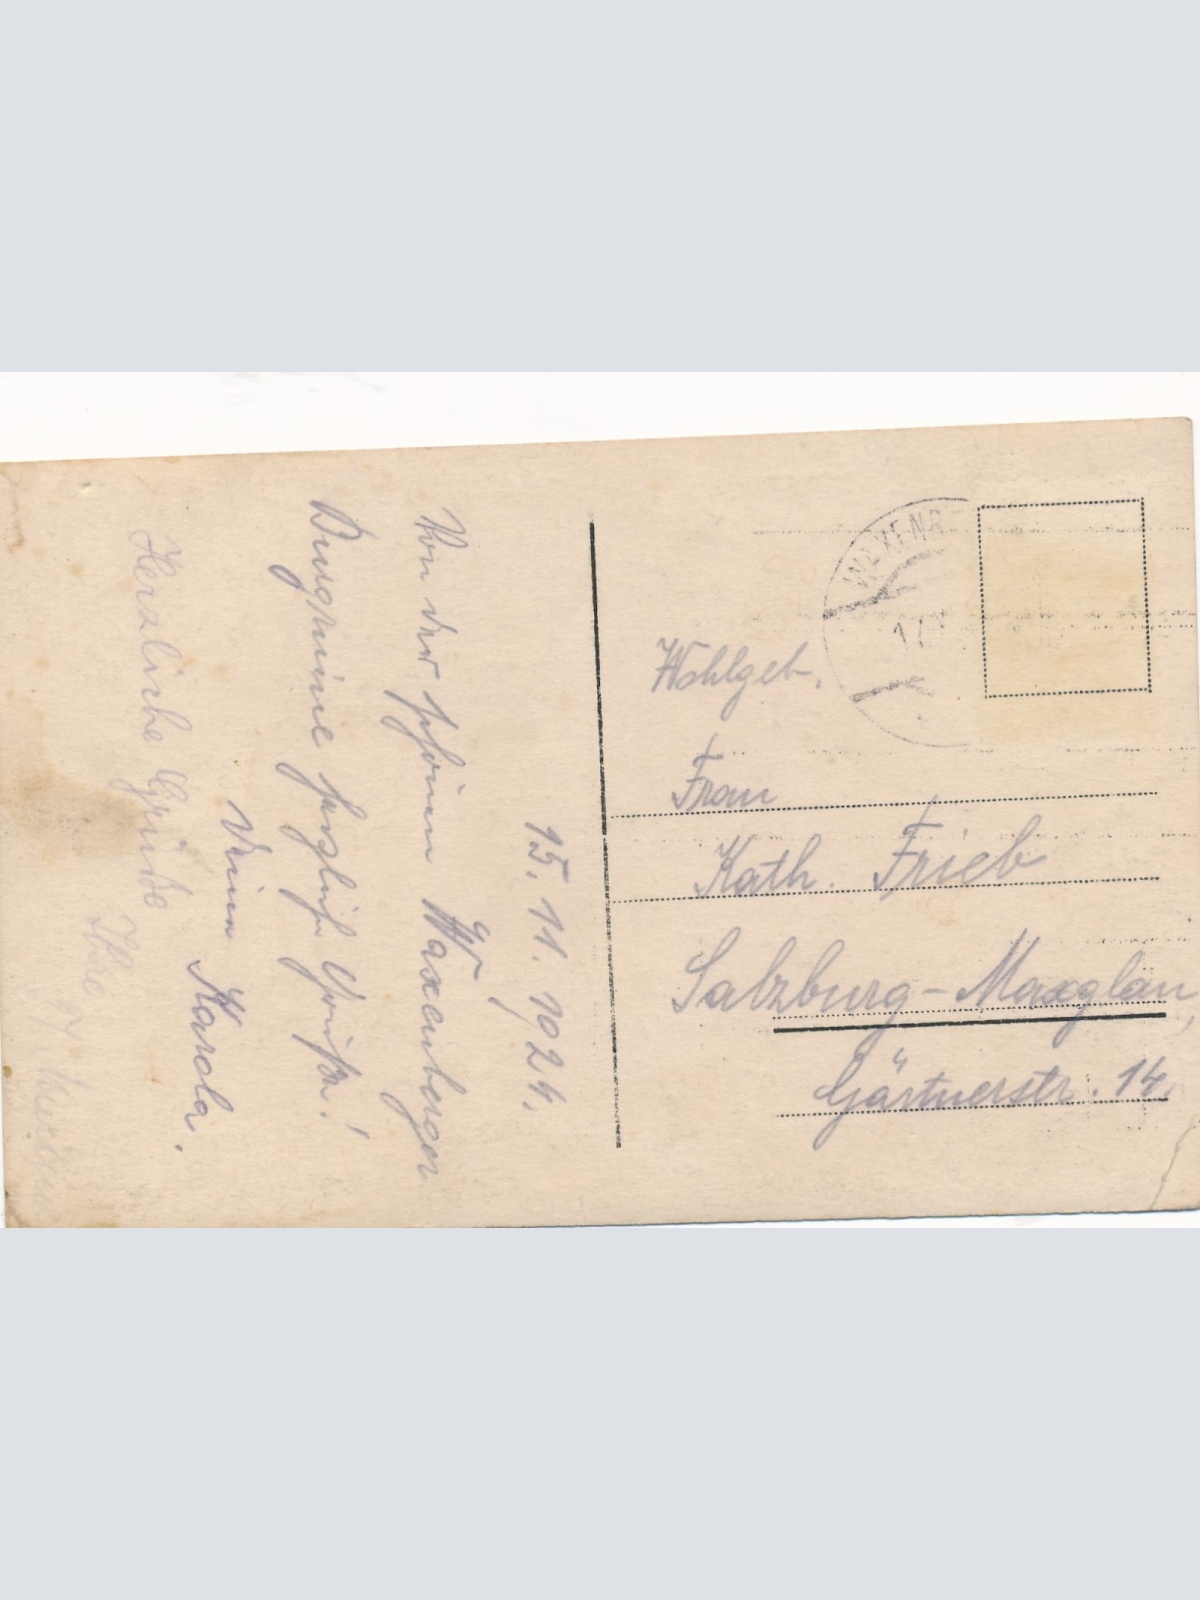 15. 11. 1924.
Von der schönen Waxenberger
Burgruine herzliche Grüße!
Deine Karola.
Herzliche Grüße
WAXENB
17.
Wohlgeb.
Frau
Kath. Frieb
Salzburg-Maxglan,
Gärtnerstr. 14.